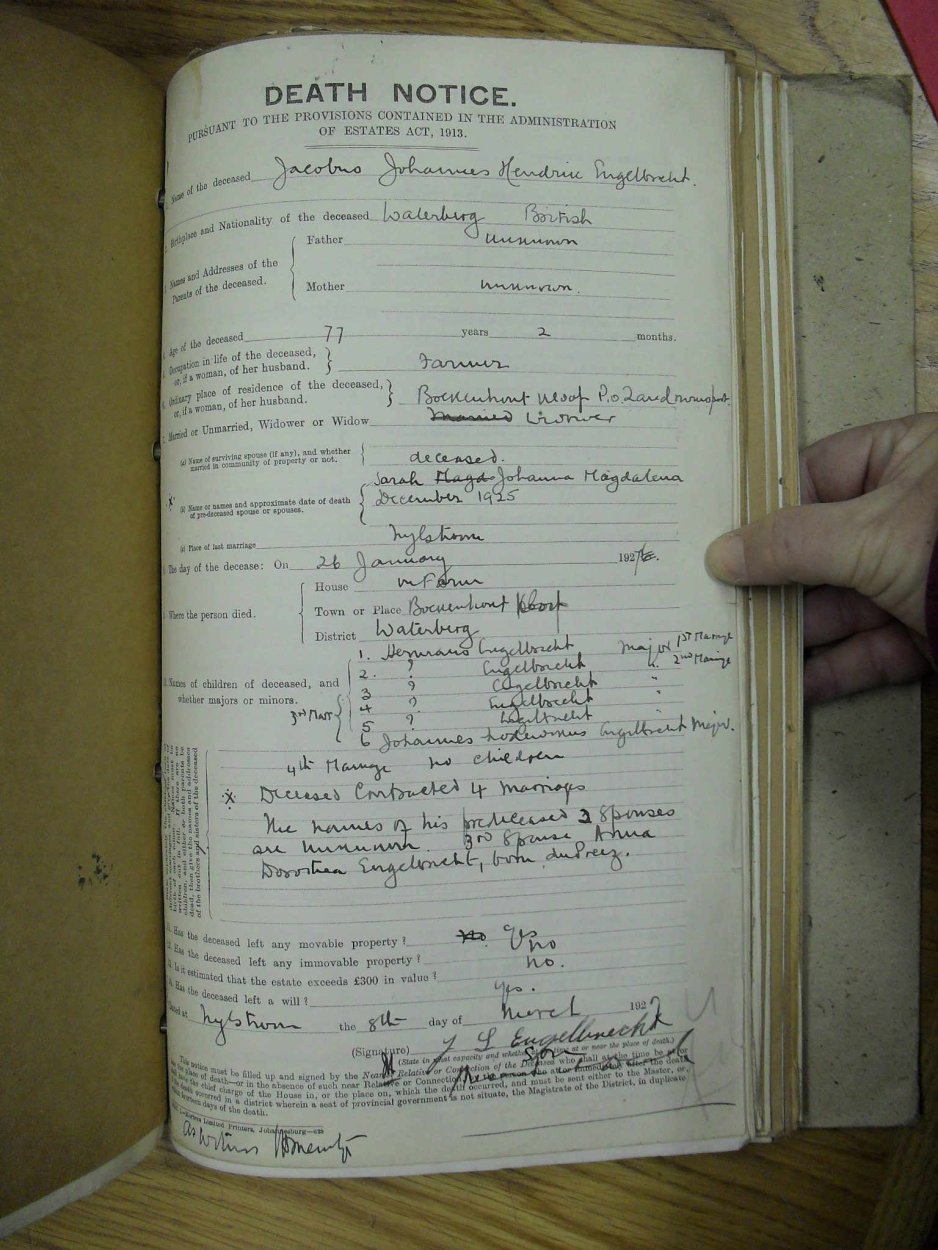 DEATH NOTICE.
PURSUANT TO THE PROVISIONS CONTAINED IN THE ADMINISTRATION
OF ESTATES ACT, 1913.
Name of the deceased Jacobus Johannes Hendric Engelbrecht.
Birthplace and Nationality of the deceased Waterberg British
Names and Addresses of the Parents of the deceased.
Father unknown
Mother unknown.
Age of the deceased 77 years 2 months.
Occupation in life of the deceased, or, if a woman, of her husband. Farmer
Ordinary place of residence of the deceased, or, if a woman, of her husband. Boekenhout P.o.
Married or Unmarried, Widower or Widow Married Widower
(a) Name of surviving spouse (if any), and whether married in community of property or not. deceased.
Sarah Magd Johanna Magdalena
(b) Name or names and approximate date of death of pre-deceased spouse or spouses. December 1925
(c) Place of last marriage Nylstroom
The day of the decease: On 26 January 192
Where the person died.
House on Farm
Town or Place Boekenhout
District Waterberg
Names of children of deceased, and whether majors or minors.
1. Hermanus Engelbrecht Major 1st Marriage
2. ? Engelbrecht " 2nd Marriage
3 ? Engelbrecht "
3rd Marr 4 ? Engelbrecht "
5 ? Engelbrecht "
6 Johannes Engelbrecht Major.
4th Marriage no children
x Deceased Contracted 4 marriages
The names of his predeceased 2 Spouses
are unknown. 3rd Spouse Anna
Dorothea Engelbrecht, born duPreez.
Has the deceased left any movable property? No Yes
Has the deceased left any immovable property? no
Is it estimated that the estate exceeds £300 in value? no.
Has the deceased left a will? yes.
Dated at Nylstroom the 8th day of March 1927
(Signature) J L Engelbrecht
(State in what capacity and whether at the time at or near the place of death.)
Son
This notice must be filled up and signed by the Nearest Relative or Connection of the Deceased who shall at the time be at or
the place of death—or in the absence of such near Relative or Connection
the chief charge of the House in, or the place on, which the death occurred, and must be sent either to the Master, or,
death occurred in a district wherein a seat of provincial government is not situate, the Magistrate of the District, in duplicate
fourteen days of the death.
Limited Printers, Johannesburg
As witness